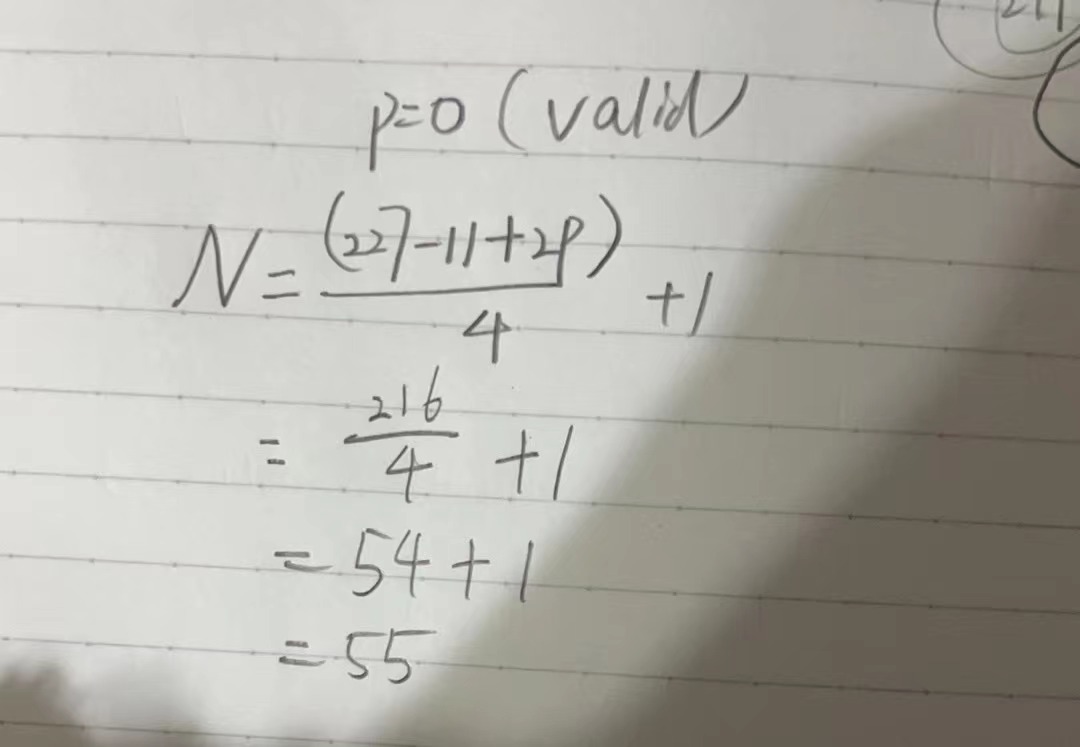 p=0 (valid)
N = (227-11+2p) / 4 + 1
= 216 / 4 + 1
= 54 + 1
= 55